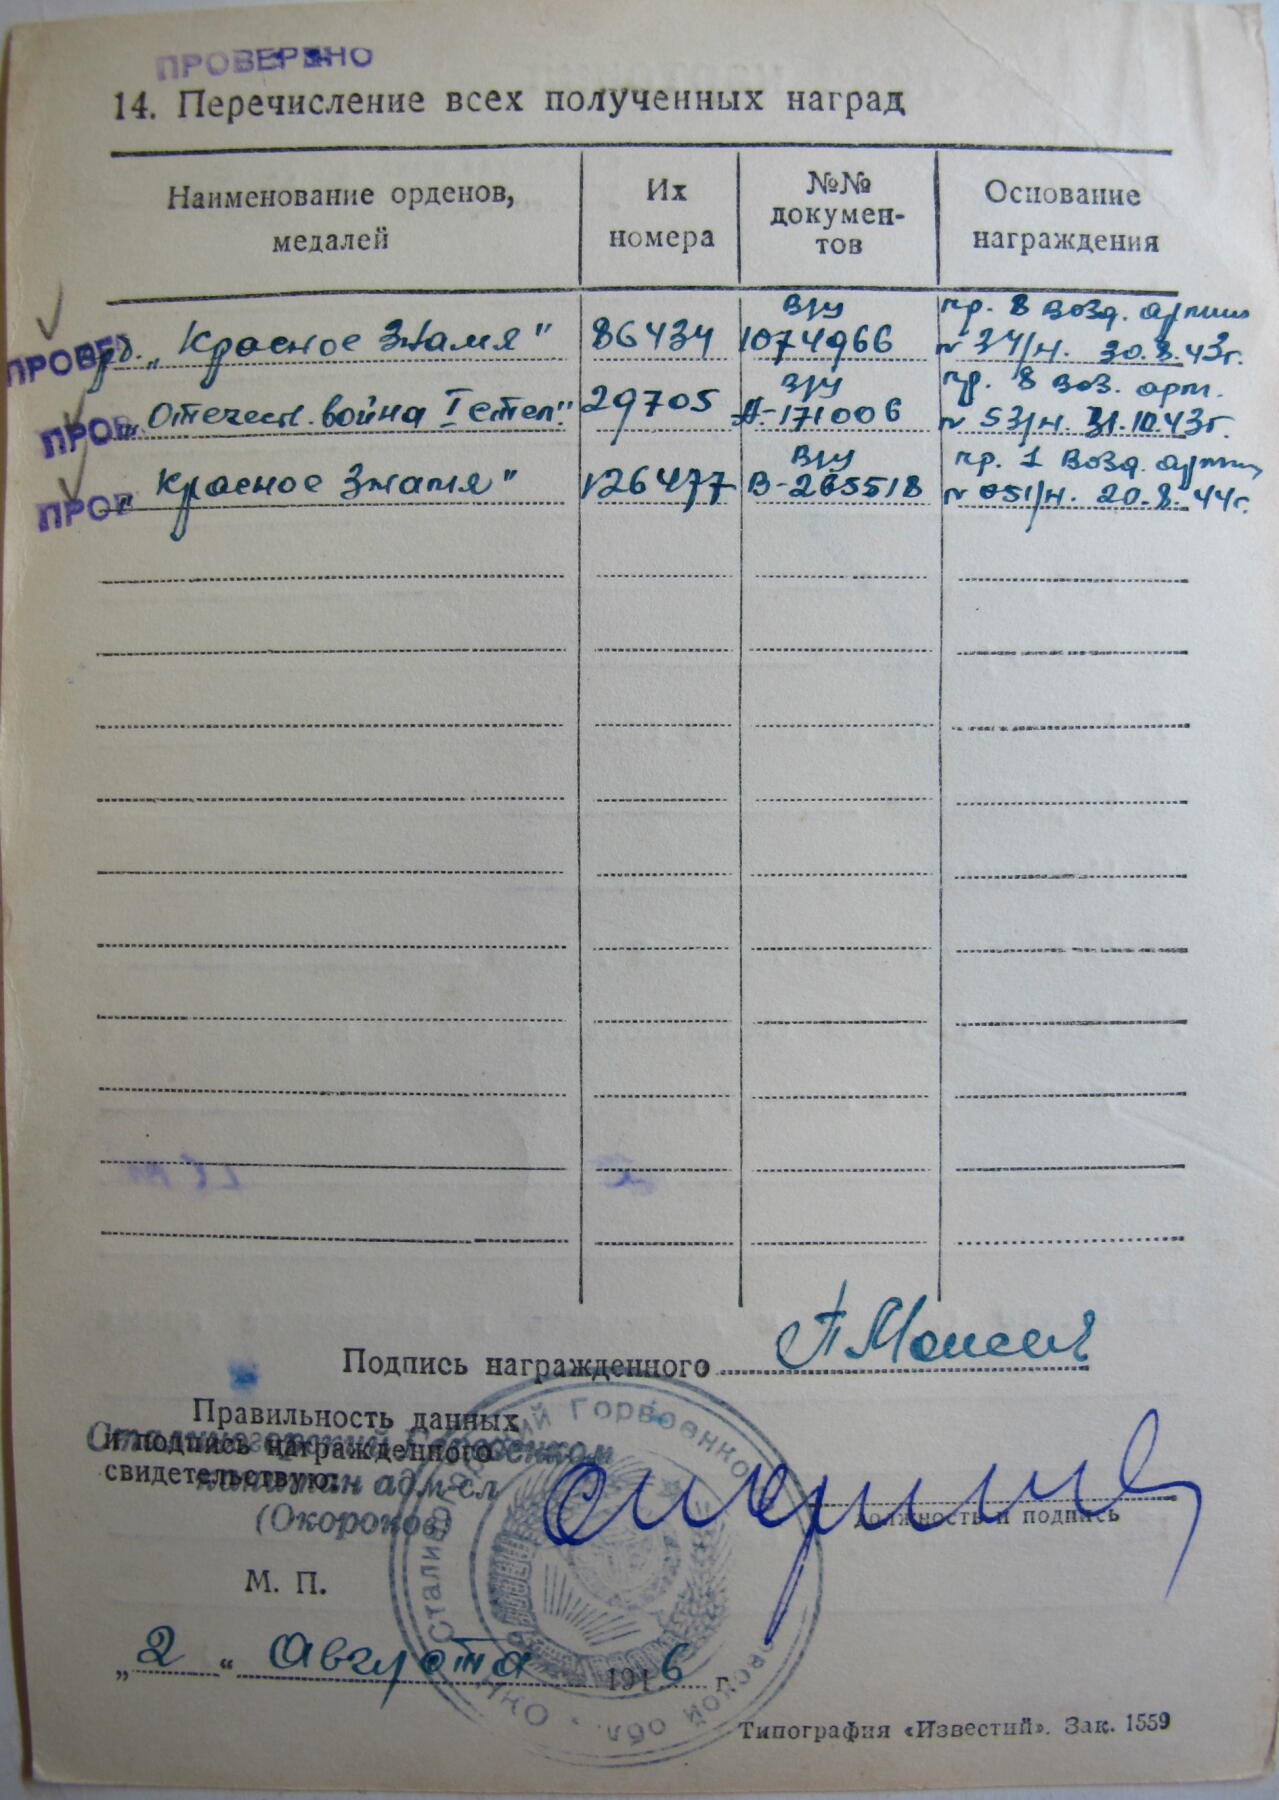 ПРОВЕРЕНО
14. Перечисление всех полученных наград
Наименование орденов, медалей
Их номера
№№ документов
Основание награждения
ПРОВЕ орд. „Красное Знамя" 86434 вру 1074966 пр. 8 Возд. армии № 34/н. 30.8.43г.
ПРОВ „Отечеств. война I степ." 29705 вру А-171006 пр. 8 Воз. арм. № 53/н. 31.10.43г.
ПРОВ „Красное Знамя" 126477 вру В-265518 пр. 1 Возд. армии № 051/н. 20.8.44г.
Подпись награжденного
Правильность данных
и подпись награжденного
свидетельствую:
Горвоенком
капитан адм-сл
(Окороков)
должность и подпись
М. П.
„2" Августа 1946 г.
Типография «Известий». Зак. 1559